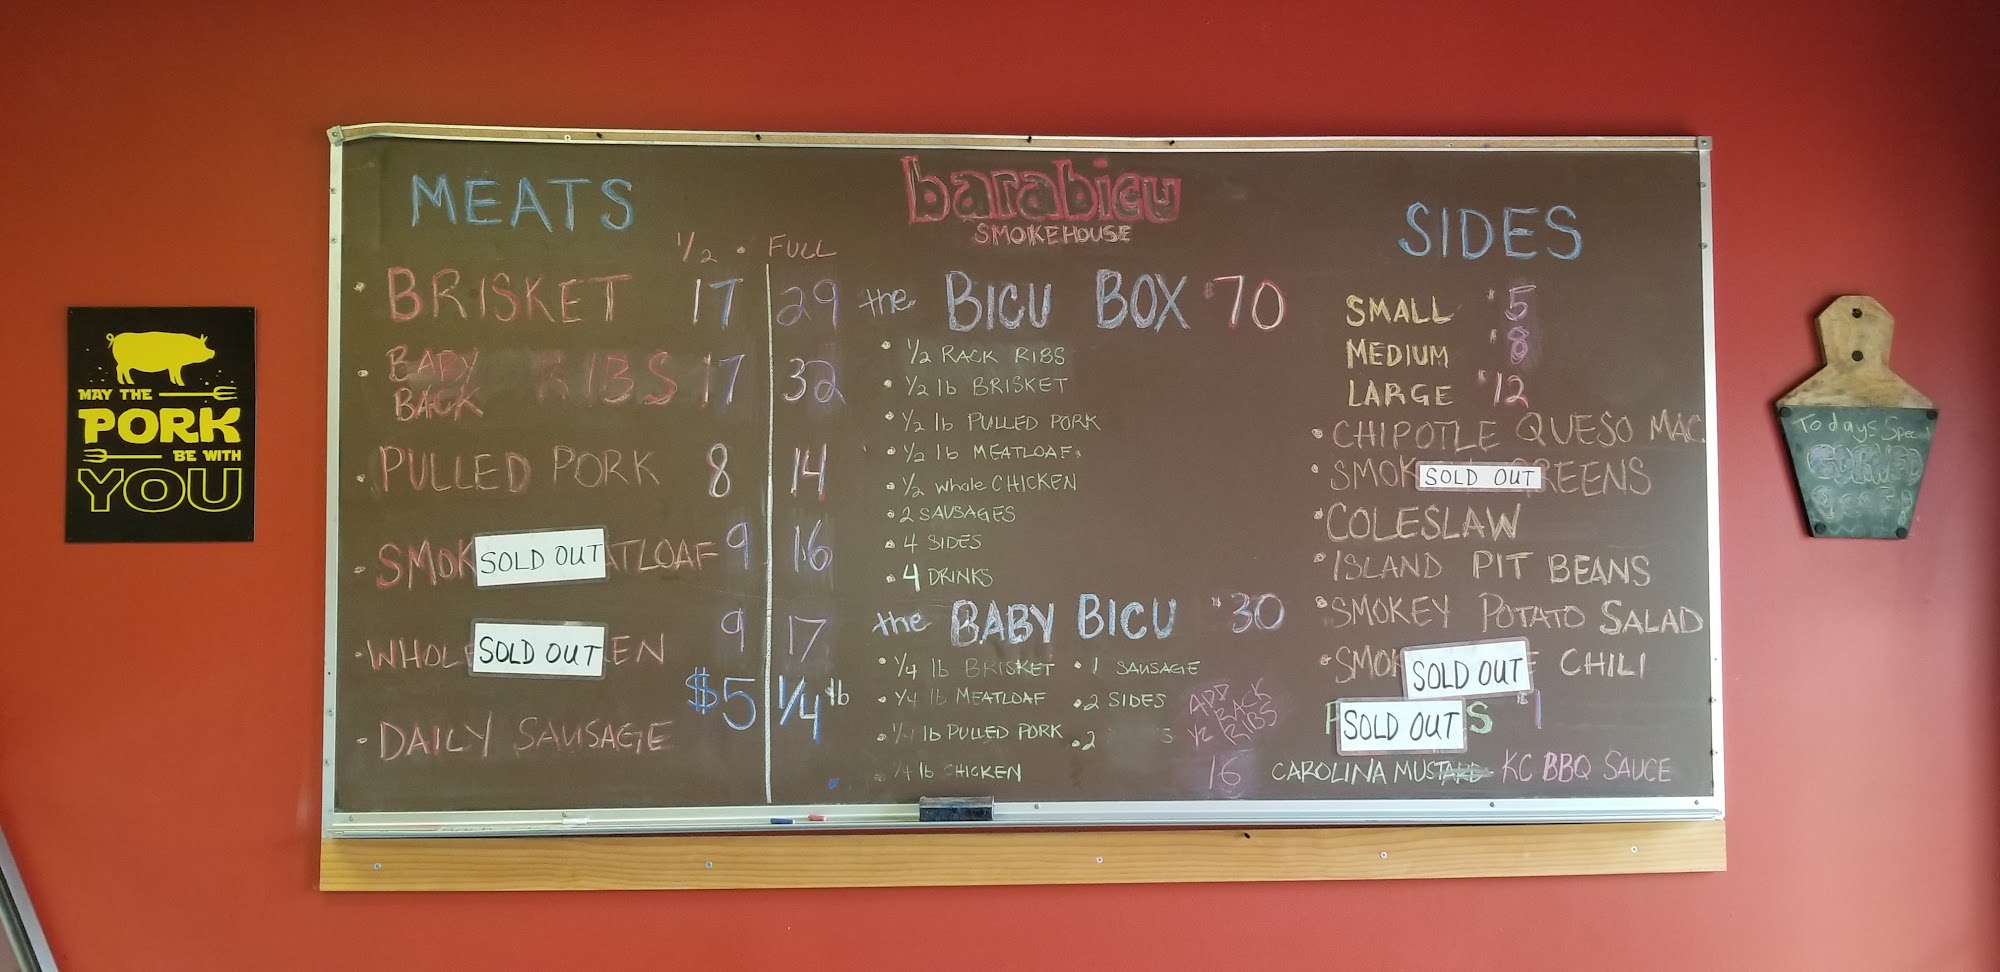 MAY THE
PORK
BE WITH
YOU
MEATS
1/2 • FULL
• BRISKET 17 29
• BABY BACK RIBS 17 32
• PULLED PORK 8 14
• SMOK SOLD OUT ATLOAF 9 16
• WHOLE SOLD OUT EN 9 17
• DAILY SAUSAGE $5 1/4 lb
barabicu
SMOKEHOUSE
the BICU BOX $70
• 1/2 RACK RIBS
• 1/2 lb BRISKET
• 1/2 lb PULLED PORK
• 1/2 lb MEATLOAF
• 1/2 whole CHICKEN
• 2 SAUSAGES
• 4 SIDES
• 4 DRINKS
the BABY BICU $30
• 1/4 lb BRISKET • 1 SAUSAGE
• 1/4 lb MEATLOAF • 2 SIDES
• 1/4 lb PULLED PORK • 2 S
• 1/4 lb CHICKEN
ADD
1/2 RACK
RIBS
16
SIDES
SMALL $5
MEDIUM $8
LARGE $12
• CHIPOTLE QUESO MAC
• SMOK SOLD OUT REENS
• COLESLAW
• ISLAND PIT BEANS
• SMOKEY POTATO SALAD
• SMOK SOLD OUT E CHILI
SOLD OUT S $1
CAROLINA MUSTARD - KC BBQ SAUCE
Todays Spec
CORNED